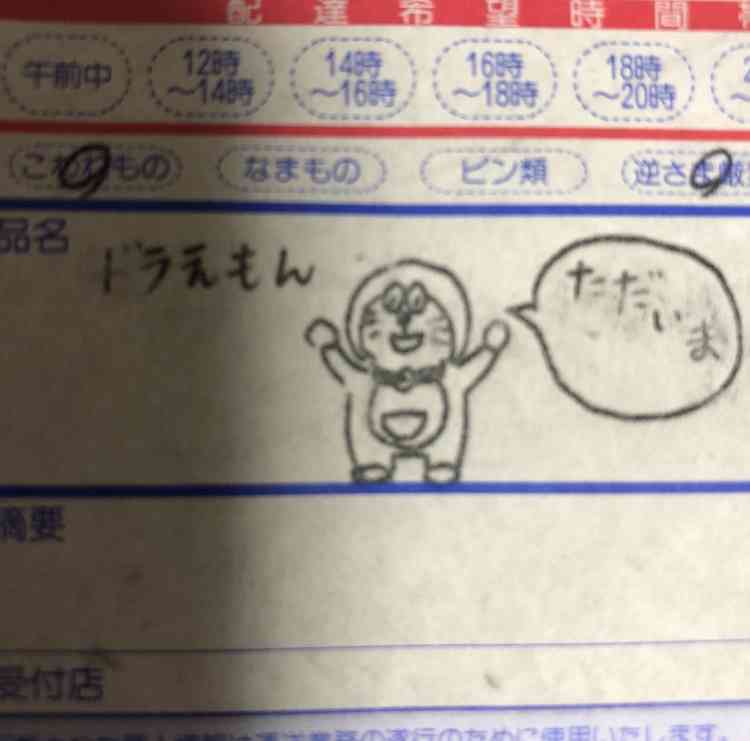 配達希望時間
午前中 12時～14時 14時～16時 16時～18時 18時～20時
こわれもの なまもの ビン類 逆さま厳
品名
ドラえもん
ただいま
摘要
受付店
のために使用いたします。